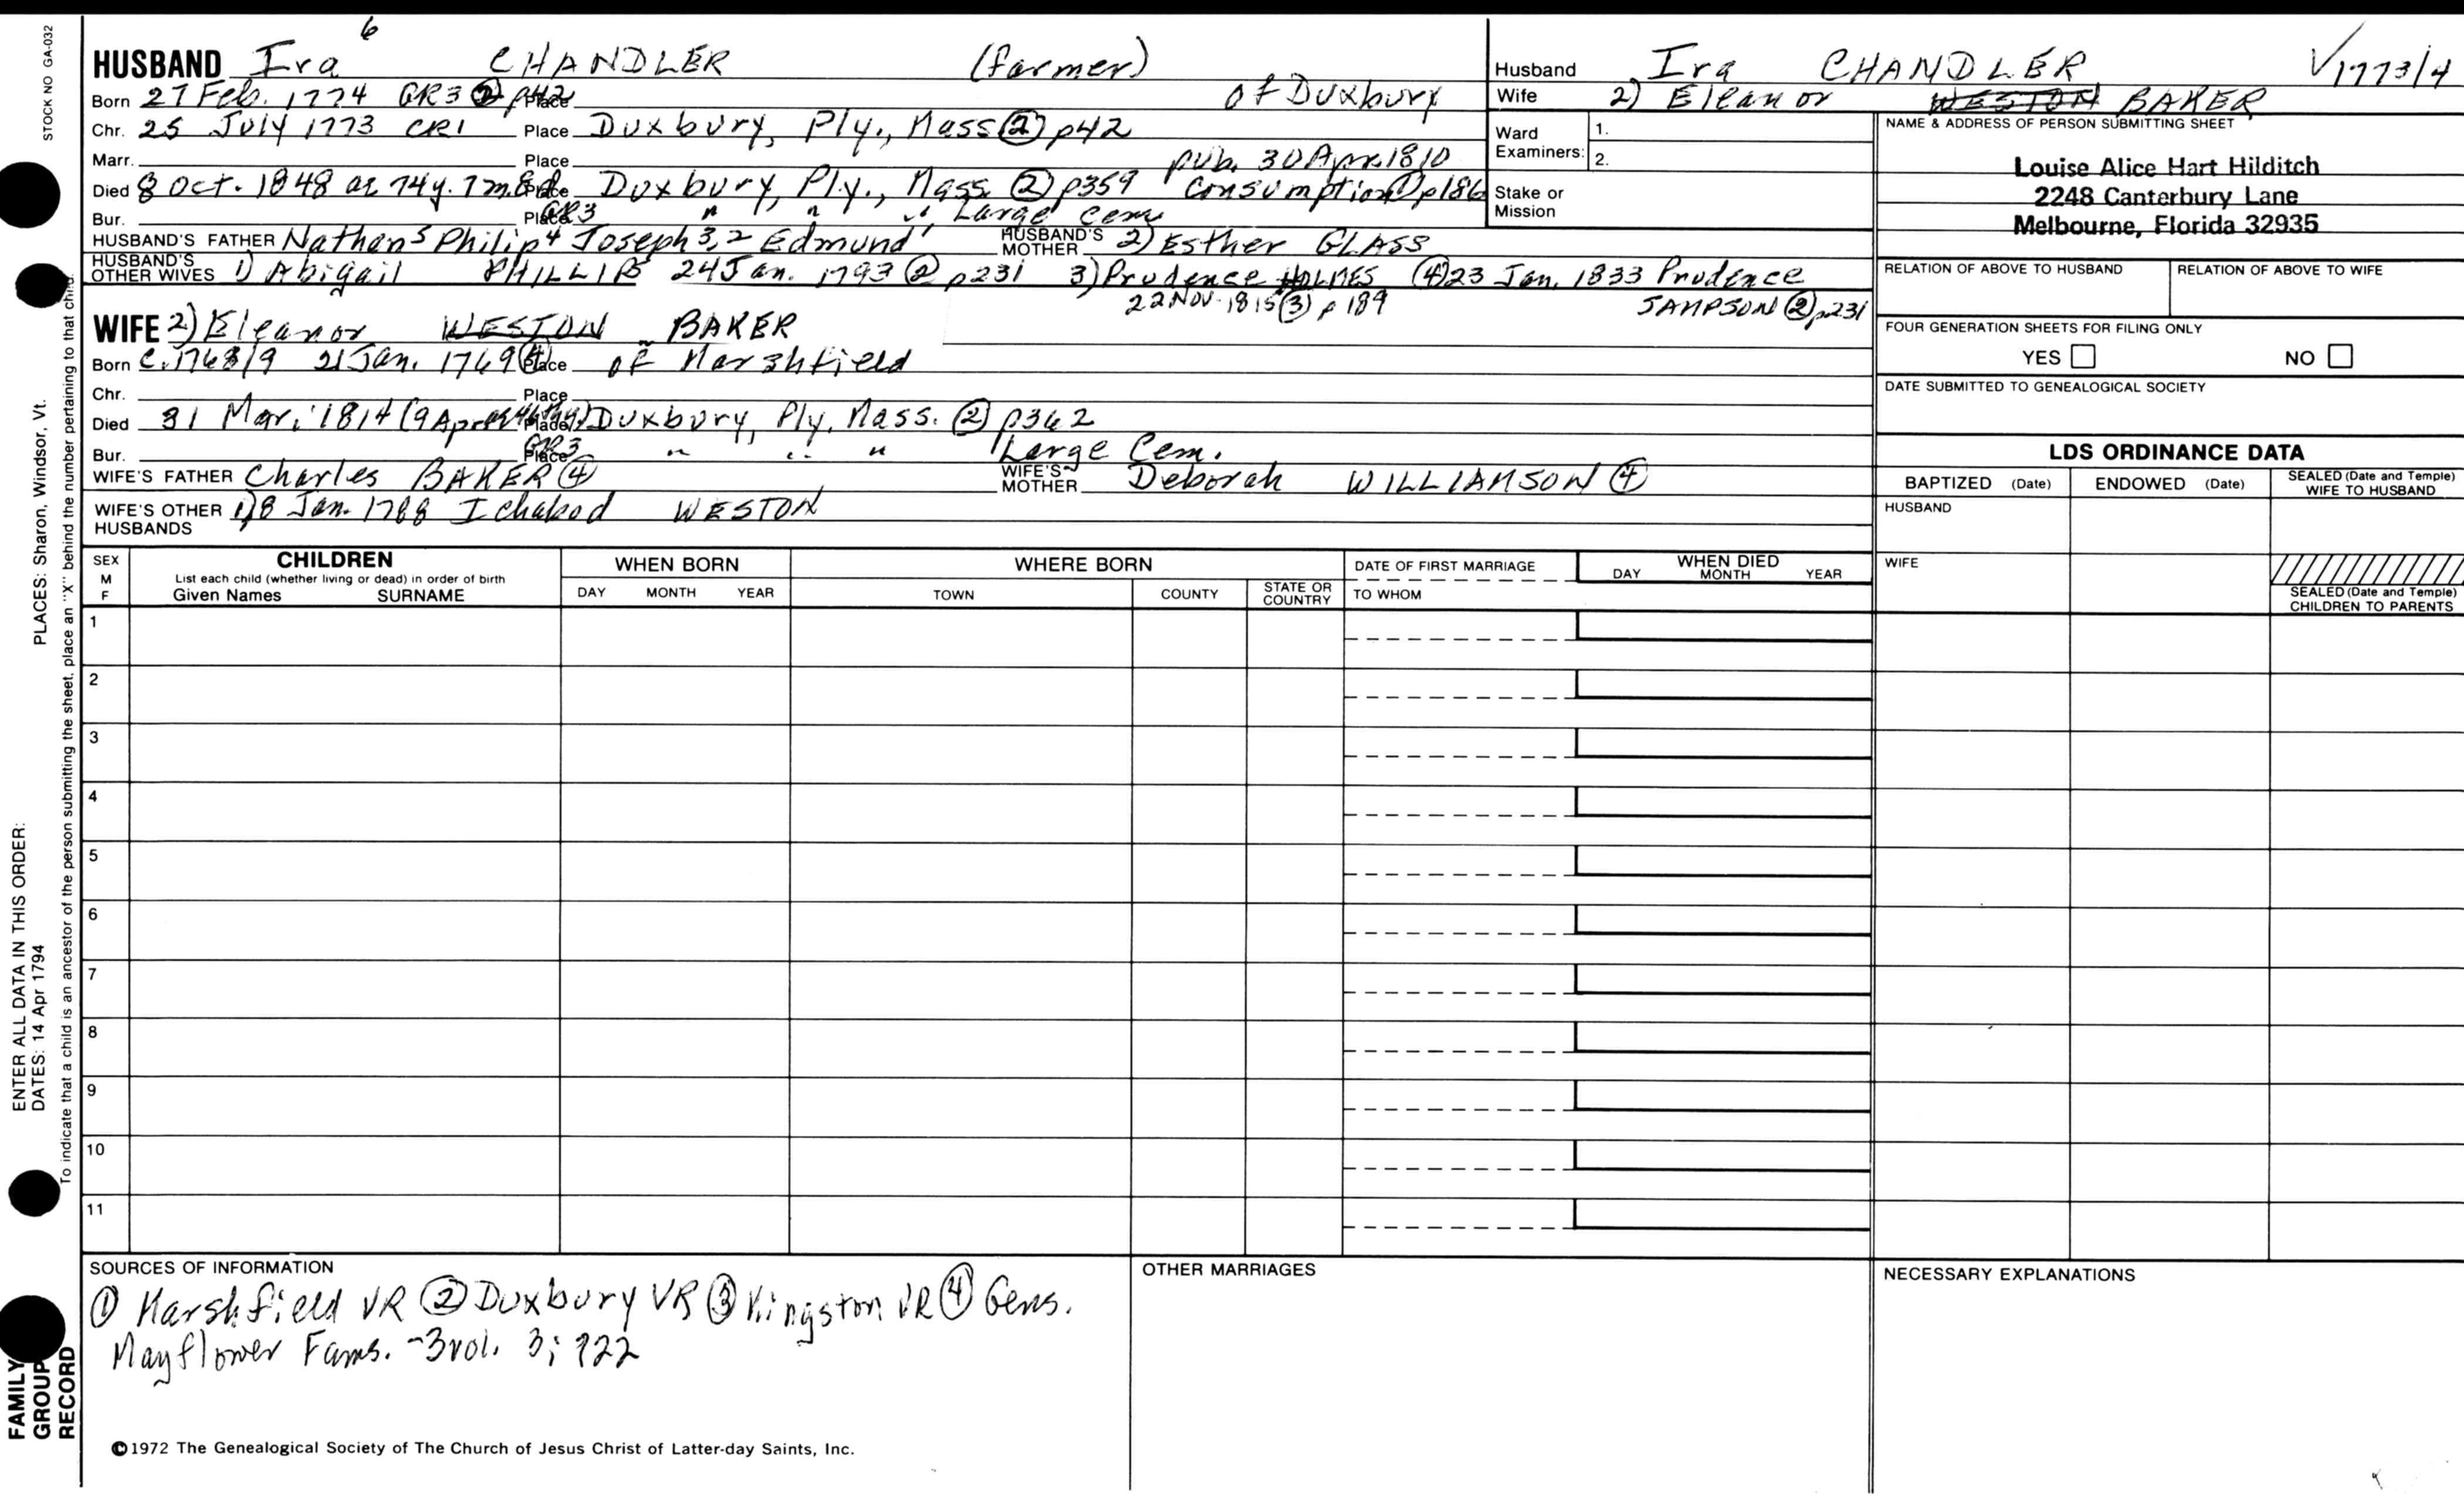 STOCK NO GA-032
PLACES: Sharon, Windsor, Vt.
ENTER ALL DATA IN THIS ORDER:
DATES: 14 Apr 1794
To indicate that a child is an ancestor of the person submitting the sheet, place an "X" behind the number pertaining to that child.
FAMILY GROUP RECORD
HUSBAND Ira 6 CHANDLER (farmer)
Born 27 Feb. 1774 GR3 ② p42 Place of Duxbury
Chr. 25 July 1773 CR1 Place Duxbury, Ply., Mass ② p42
Marr. Place pub. 30 Apr. 1810
Died 8 Oct. 1848 ae 74y. 7m. 8d Place Duxbury, Ply., Mass. ② p359 Consumption ① p186
Bur. GR3 Place " " " Large Cem
HUSBAND'S FATHER Nathan 5 Philip 4 Joseph 3,2 Edmund 1 HUSBAND'S MOTHER 2) Esther GLASS
HUSBAND'S OTHER WIVES 1) Abigail PHILLIPS 24 Jan. 1793 ② p231 3) Prudence HOLMES (4) 23 Jan. 1833 Prudence
22 Nov. 1815 ③ p189 SAMPSON ② p231
WIFE 2) Eleanor WESTON BAKER
Born c. 1768/9 21 Jan. 1769 ④ Place of Marshfield
Chr. Place
Died 31 Mar. 1814 (9 Apr. Place Duxbury, Ply, Mass. ② p362
Bur. GR3 Place " " " Large Cem.
WIFE'S FATHER Charles BAKER ④ WIFE'S MOTHER Deborah WILLIAMSON ④
WIFE'S OTHER HUSBANDS 1) 8 Jan. 1788 Ichabod WESTON
Husband Ira CHANDLER V1773/4
Wife 2) Eleanor WESTON BAKER
Ward 1.
Examiners: 2.
Stake or
Mission
NAME & ADDRESS OF PERSON SUBMITTING SHEET
Louise Alice Hart Hilditch
2248 Canterbury Lane
Melbourne, Florida 32935
RELATION OF ABOVE TO HUSBAND RELATION OF ABOVE TO WIFE
FOUR GENERATION SHEETS FOR FILING ONLY
YES NO
DATE SUBMITTED TO GENEALOGICAL SOCIETY
LDS ORDINANCE DATA
BAPTIZED (Date) ENDOWED (Date) SEALED (Date and Temple) WIFE TO HUSBAND
HUSBAND
WIFE
SEALED (Date and Temple) CHILDREN TO PARENTS
SEX M F CHILDREN WHEN BORN WHERE BORN DATE OF FIRST MARRIAGE WHEN DIED
List each child (whether living or dead) in order of birth
Given Names SURNAME DAY MONTH YEAR TOWN COUNTY STATE OR COUNTRY TO WHOM DAY MONTH YEAR
1
2
3
4
5
6
7
8
9
10
11
SOURCES OF INFORMATION
① Marshfield VR ② Duxbury VR ③ Kingston VR ④ Gens.
Mayflower Fams. -3vol. 3;
OTHER MARRIAGES
NECESSARY EXPLANATIONS
©1972 The Genealogical Society of The Church of Jesus Christ of Latter-day Saints, Inc.